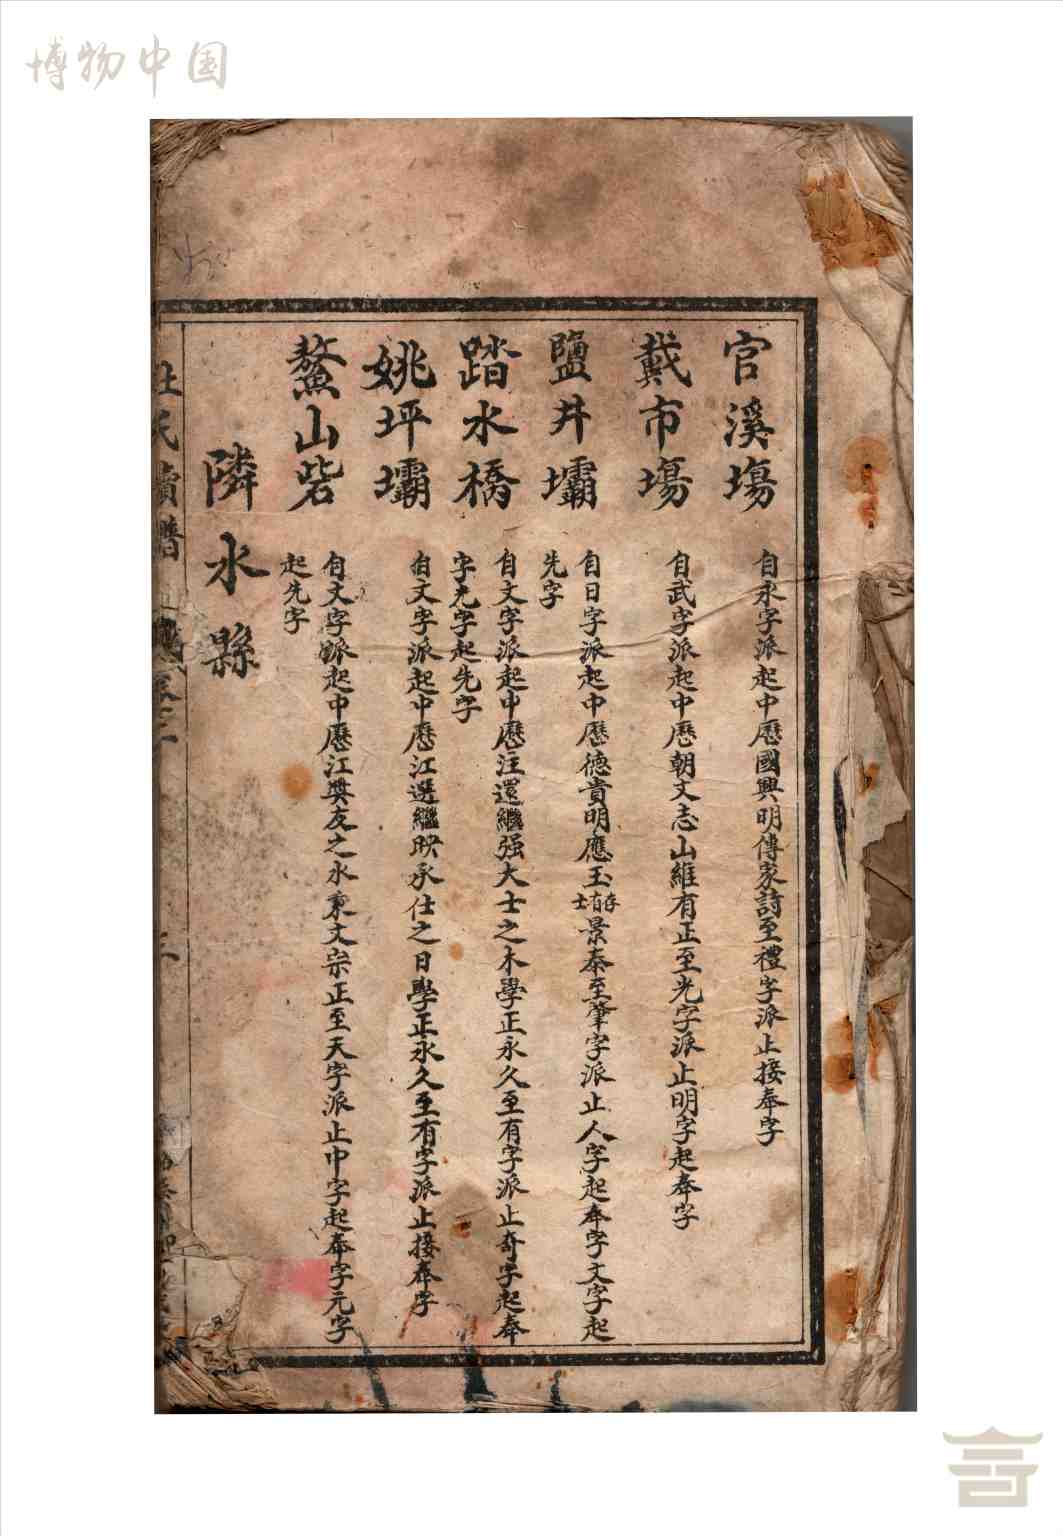 博物中国
官溪塲
自永字派起中厯國興明傳家詩至禮字派止接奉字
戴市塲
自武字派起中厯朝文志山維有正至光字派止明字起奉字
鹽井壩
自日字派起中厯德貴明應玉存有士景泰至肇字派止人字起奉字文字起
先字
踏水橋
自文字派起中厯注還繼强大士之木學正永久至有字派止奇字起奉
字元字起先字
姚坪壩
自文字派起中厯江選繼映承仕之日學正永久至有字派止接奉字
鰲山砦
自文字派起中厯江獎友之永秉文宗正至天字派止中字起奉字元字
起先字
隣水縣
杜氏續譜